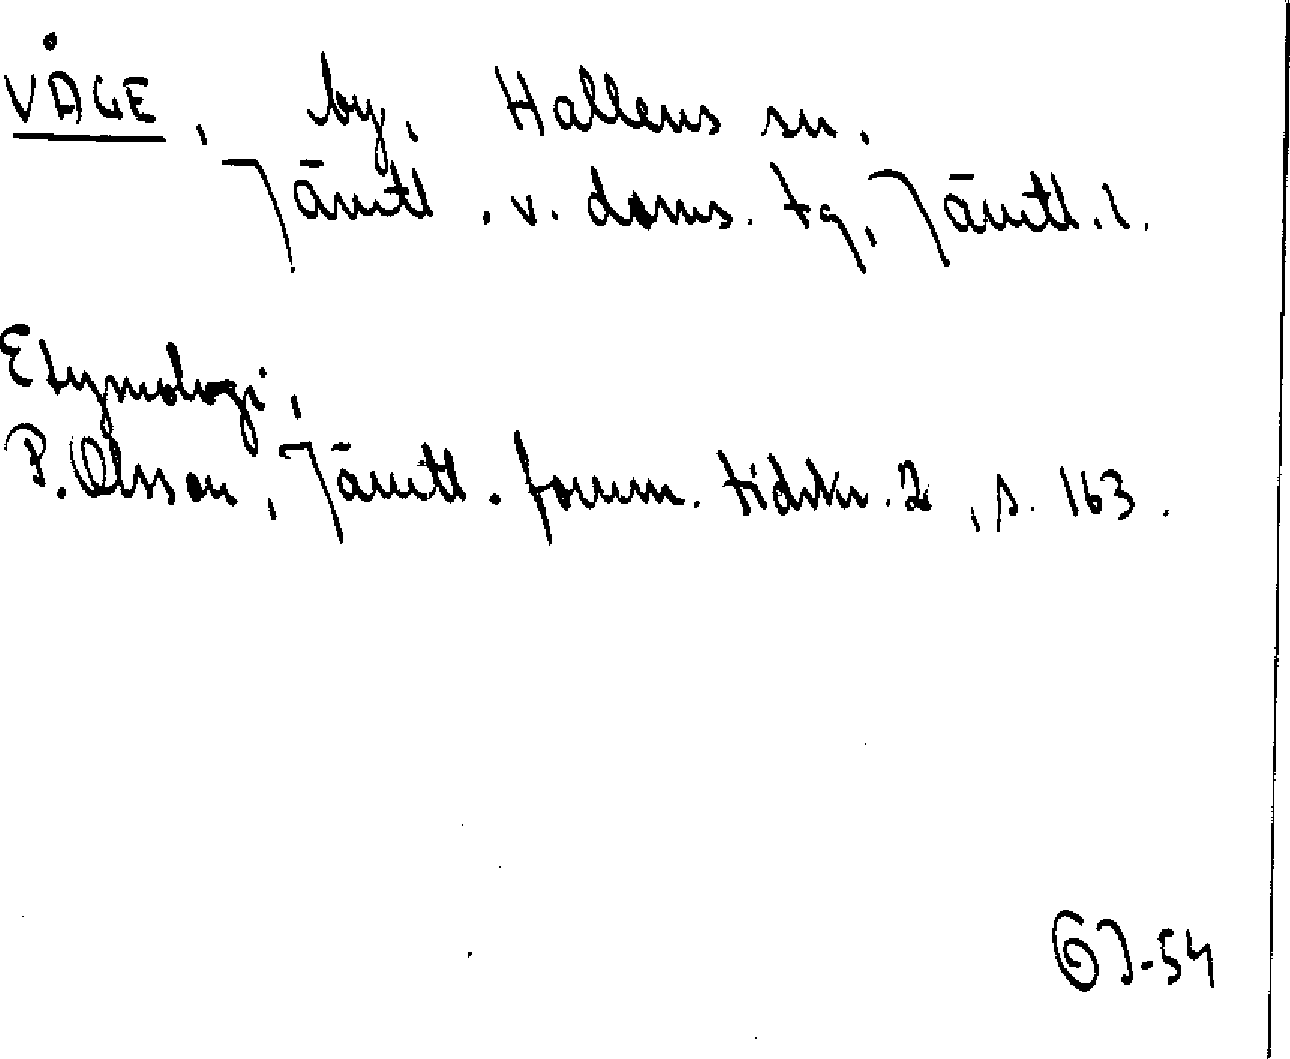 VÅGE, by, Hallens sn,
Jämtl. v. doms. tg, Jämtl. l.
Etymologi,
P. Olsson, Jämtl. fornm. tidskr. 2, s. 163.
GJ-54